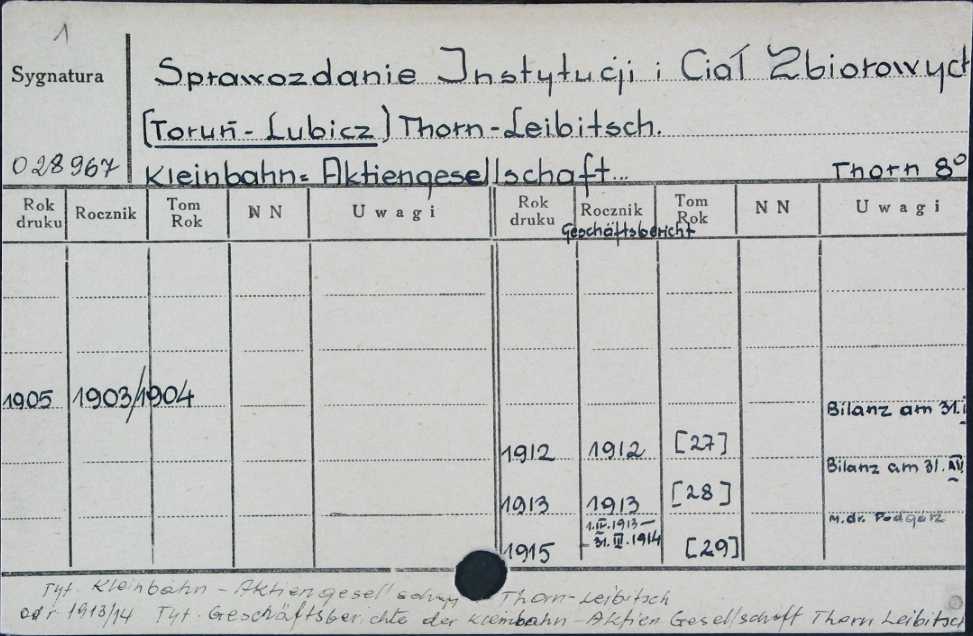 1
Sygnatura
Sprawozdanie Instytucji i Ciał Zbiorowych
(Toruń - Lubicz) Thorn-Leibitsch.
028967
Kleinbahn= Aktiengesellschaft... Thorn 8°
Rok druku Rocznik Tom Rok N N Uwagi Rok druku Rocznik Tom Rok N N Uwagi
Geschäftsbericht
1905 1903/1904
Bilanz am 31.
1912 1912 [27]
Bilanz am 31.
1913 1913 [28]
m.dr. Podgórz
1.IV.1913 -
- 31.III.1914
1915 [29]
Tyt. Kleinbahn - Aktiengesellschaft Thorn-Leibitsch
od r 1913/14 Tyt. Geschäftsberichte der Kleinbahn - Aktien Gesellschaft Thorn Leibitsch